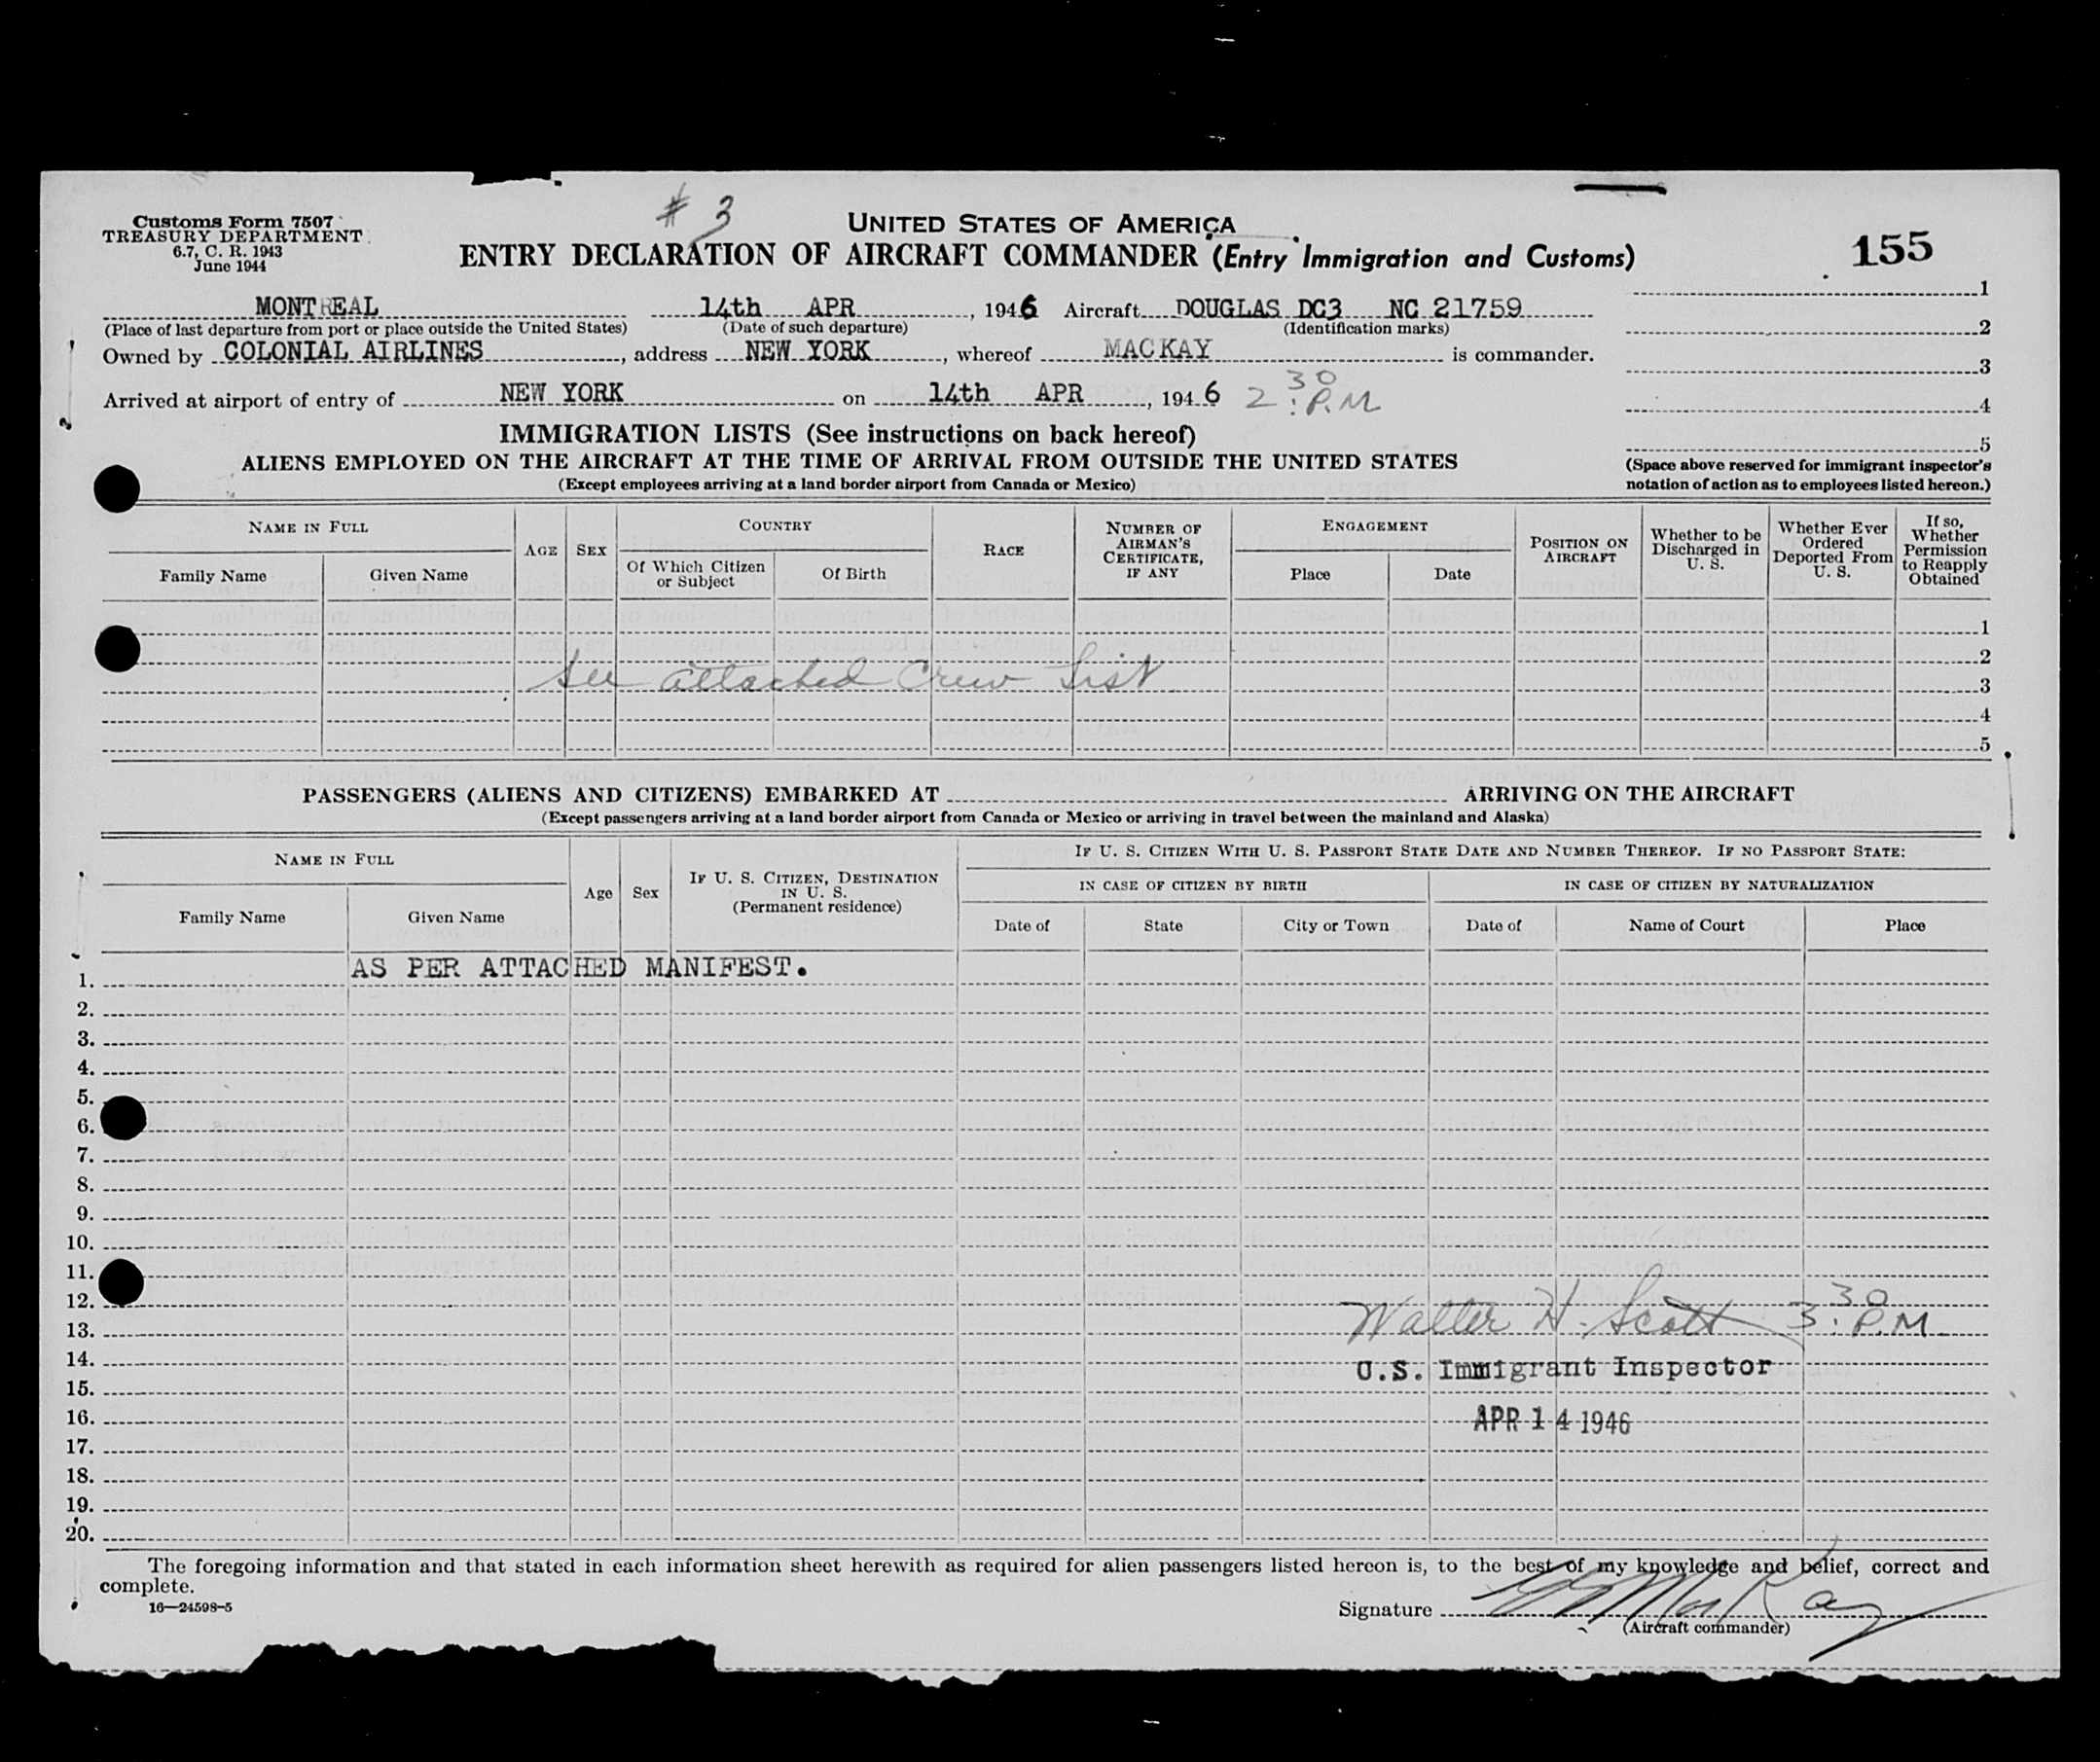 # 3
Customs Form 7507
TREASURY DEPARTMENT
6.7, C. R. 1943
June 1944
UNITED STATES OF AMERICA
ENTRY DECLARATION OF AIRCRAFT COMMANDER (Entry Immigration and Customs)
155
MONTREAL 14th APR, 1946 Aircraft DOUGLAS DC3 NC 21759
(Place of last departure from port or place outside the United States) (Date of such departure) (Identification marks)
Owned by COLONIAL AIRLINES, address NEW YORK, whereof MACKAY is commander.
Arrived at airport of entry of NEW YORK on 14th APR, 1946 2:30 P.M
1
2
3
4
5
(Space above reserved for immigrant inspector's
notation of action as to employees listed hereon.)
IMMIGRATION LISTS (See instructions on back hereof)
ALIENS EMPLOYED ON THE AIRCRAFT AT THE TIME OF ARRIVAL FROM OUTSIDE THE UNITED STATES
(Except employees arriving at a land border airport from Canada or Mexico)
NAME IN FULL
Family Name
Given Name
AGE
SEX
COUNTRY
Of Which Citizen
or Subject
Of Birth
RACE
NUMBER OF
AIRMAN'S
CERTIFICATE,
IF ANY
ENGAGEMENT
Place
Date
POSITION ON
AIRCRAFT
Whether to be
Discharged in
U. S.
Whether Ever
Ordered
Deported From
U. S.
If so,
Whether
Permission
to Reapply
Obtained
1
2
See attached Crew List
3
4
5
PASSENGERS (ALIENS AND CITIZENS) EMBARKED AT ARRIVING ON THE AIRCRAFT
(Except passengers arriving at a land border airport from Canada or Mexico or arriving in travel between the mainland and Alaska)
NAME IN FULL
Family Name
Given Name
Age
Sex
IF U. S. CITIZEN, DESTINATION
IN U. S.
(Permanent residence)
IF U. S. CITIZEN WITH U. S. PASSPORT STATE DATE AND NUMBER THEREOF. IF NO PASSPORT STATE:
IN CASE OF CITIZEN BY BIRTH
IN CASE OF CITIZEN BY NATURALIZATION
Date of
State
City or Town
Date of
Name of Court
Place
1. AS PER ATTACHED MANIFEST.
2.
3.
4.
5.
6.
7.
8.
9.
10.
11.
12.
13. Walter H. Scott 3:30 P.M.
14. U.S. Immigrant Inspector
15.
16. APR 14 1946
17.
18.
19.
20.
The foregoing information and that stated in each information sheet herewith as required for alien passengers listed hereon is, to the best of my knowledge and belief, correct and
complete.
16—24598-5
Signature MacKay
(Aircraft commander)